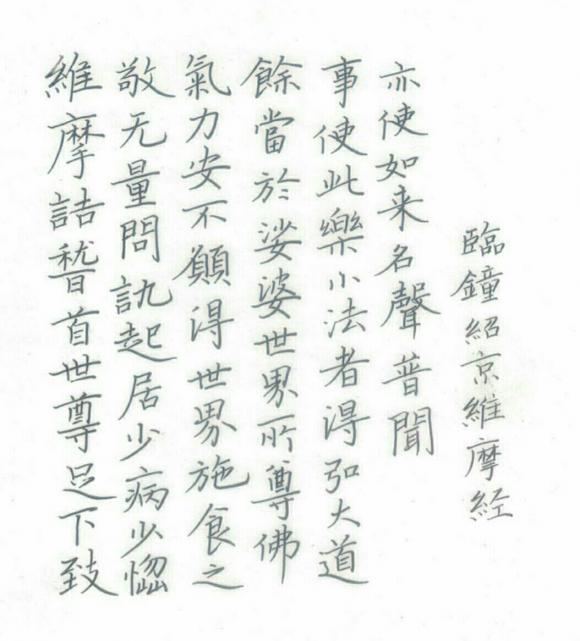 維摩詰稽首世尊足下致
敬无量問訊起居少病少惱
氣力安不願得世界施食之
餘當於娑婆世界所尊佛
事使此樂小法者得弘大道
亦使如来名聲普聞
臨鐘紹京維摩経